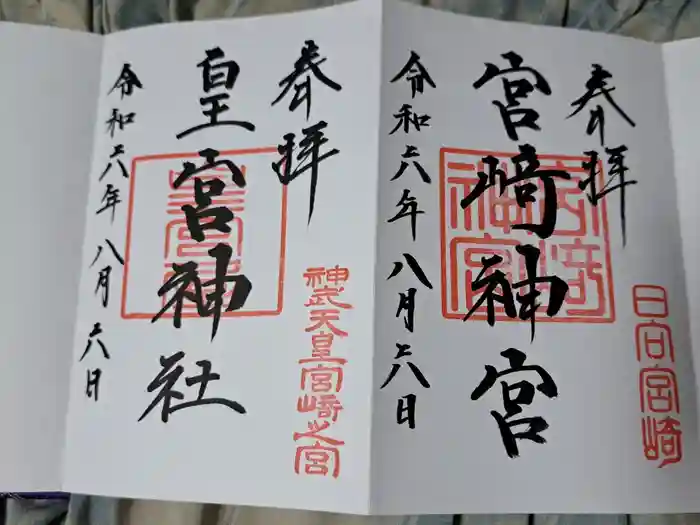 奉拝
日向宮崎
宮﨑神宮
宮崎神宮
令和六年八月六八日
奉拝
神武天皇宮崎之宮
皇宮神社
令和六年八月六八日